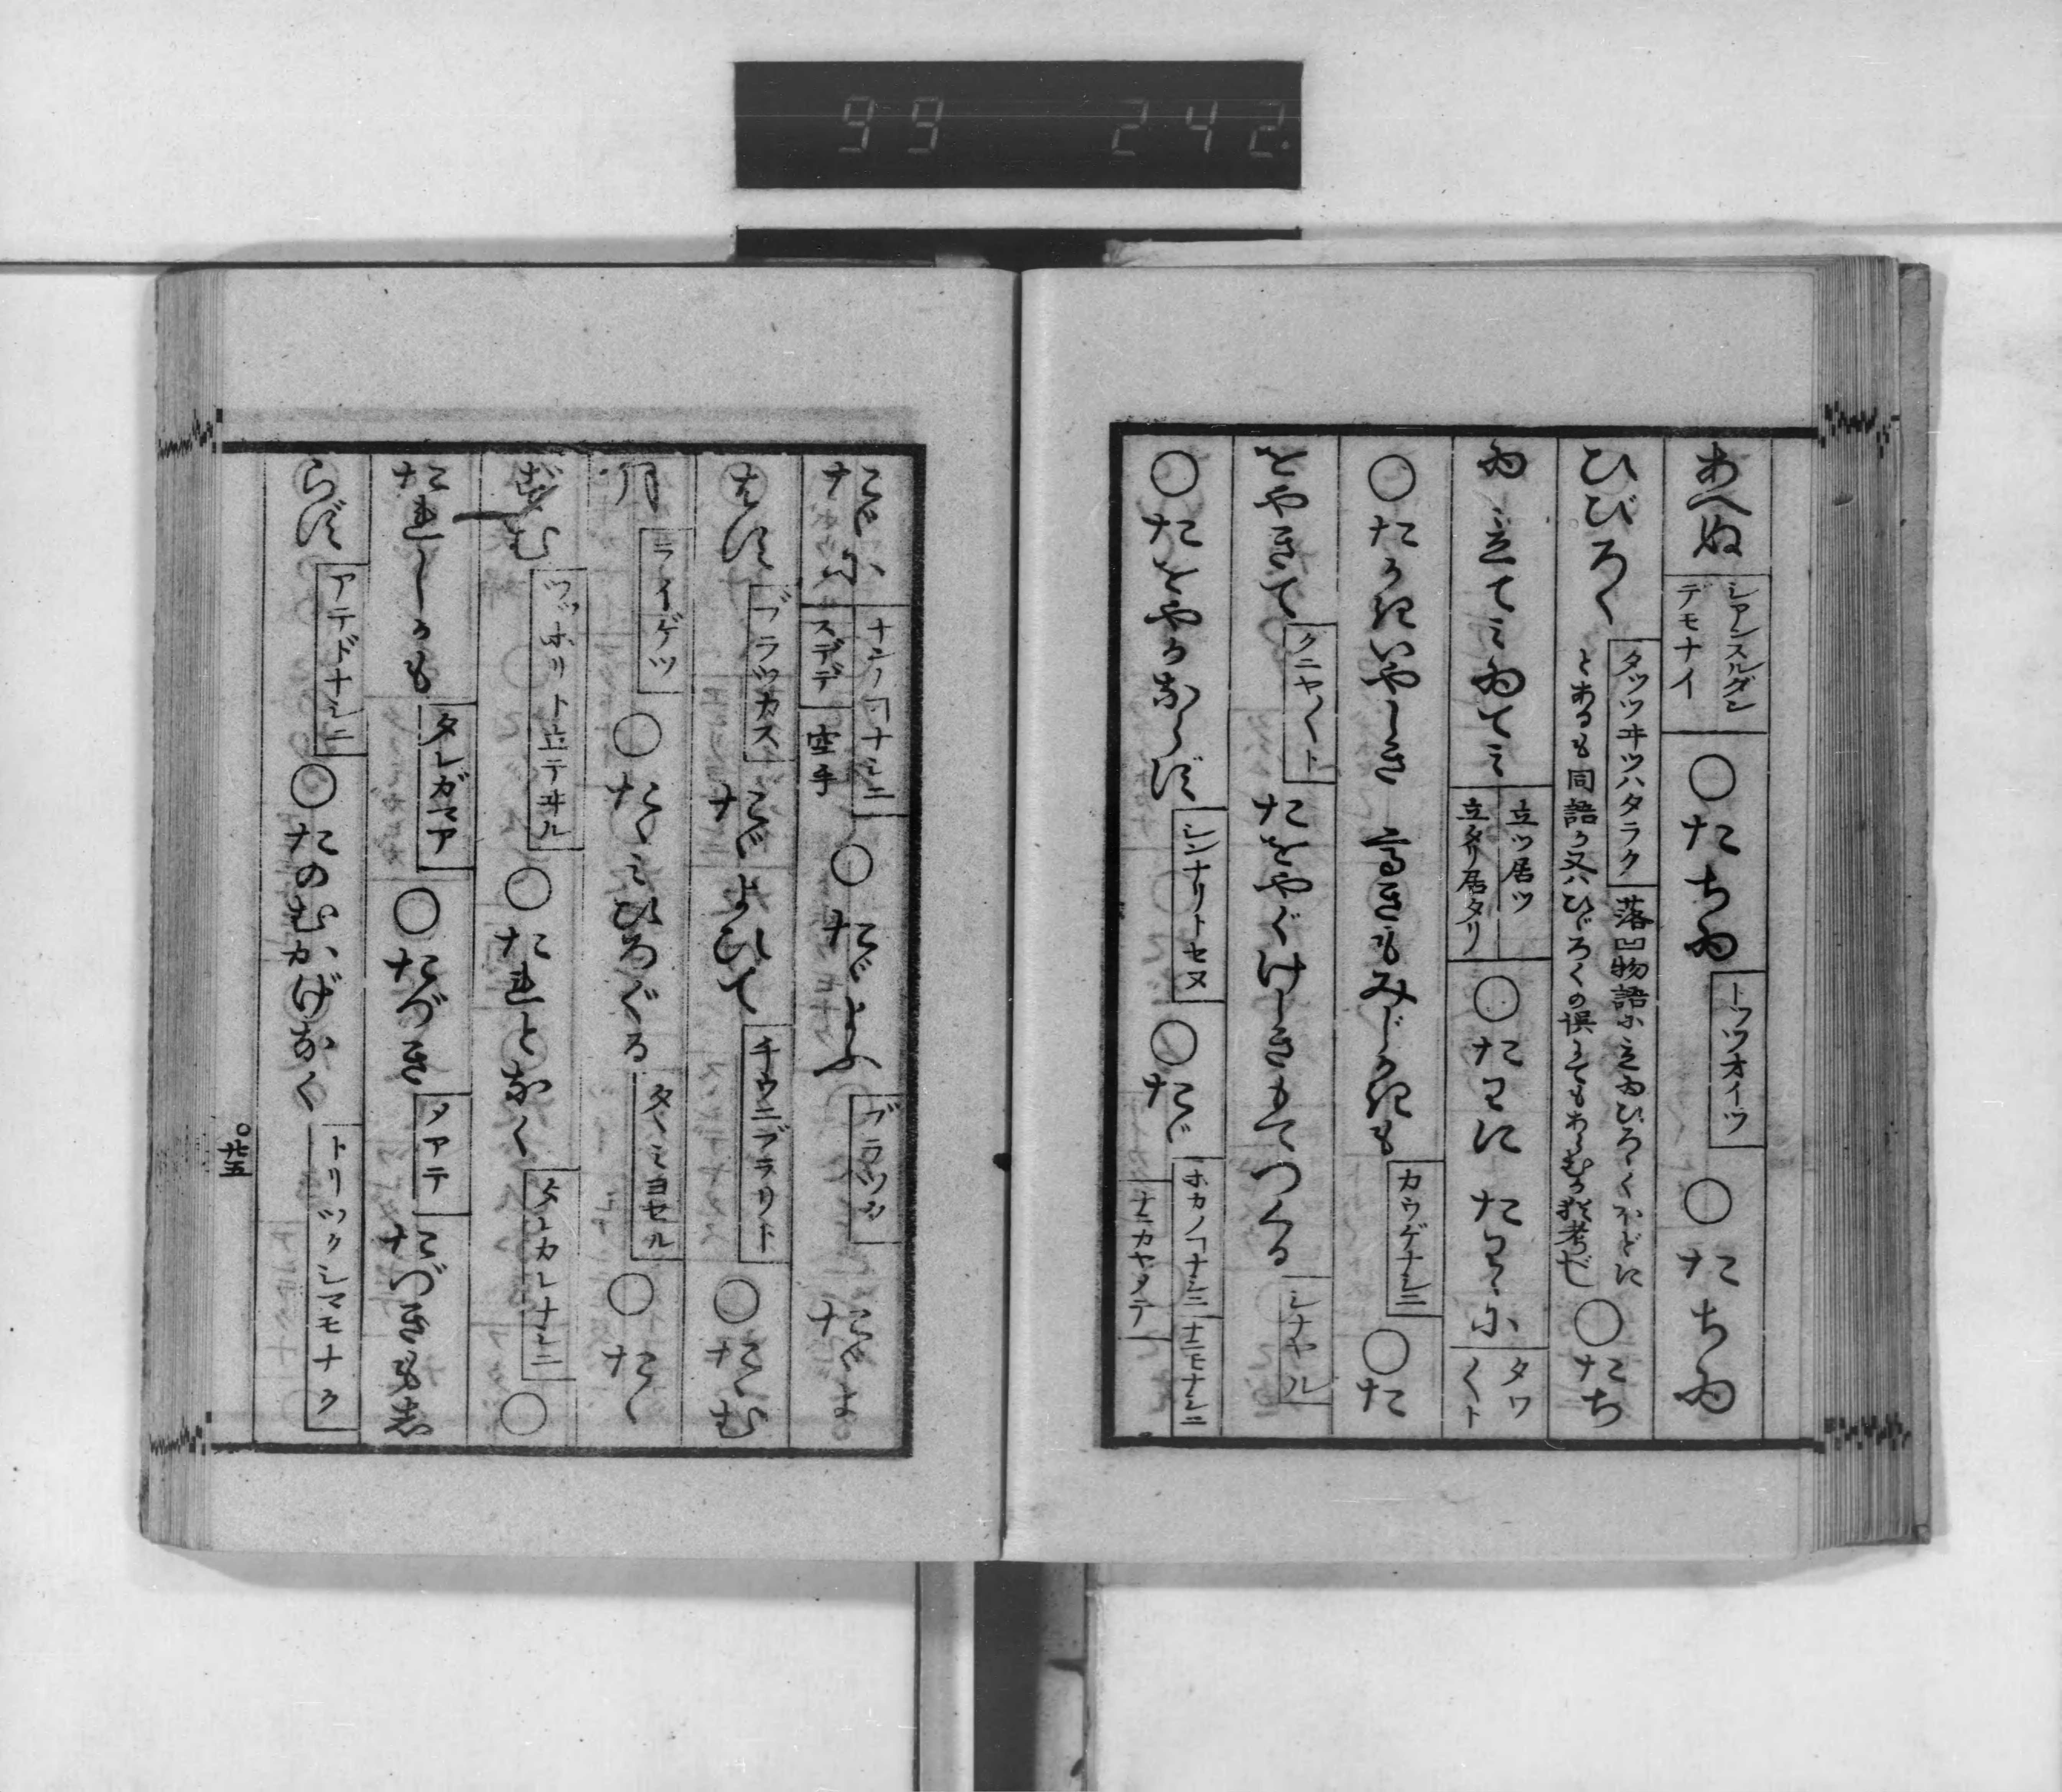 99 242.
あへぬ シアンスルダン デモナイ ○たちゐ トツツオイツ ○たちゐ
ひびろく タツツヰツハタラク 落凹物語に立ゐひろくほどに とあるも同語か又ハひゞろくの誤 ○たち
ゐ 立てミゐてミ 立ツ居ツ 立タリ居タリ ○たわに たわゝに タワ〱ト
○たかきいやしき 高きもみじかきも カウゲナシニ ○た
をやぎて クニヤ〱ト たをやぐけしきもてつくる シナヤル
○たをやかならず シンナリトセヌ ○たゞ ホカノヿナシニ ナニモナシニ ナニカヤメテ
たゞに ナンノヿナシニ スデデ 空手 ○たゞよふ ブラツク たゞよ
はす ブラツカス たゞよひて チウニブラリト ○たゝむ
月 ライゲツ ○たゝミひろぐる タヽミヨセル ○たゝ
ずむ ツツホリト立テヰル ○たれとなく タレカレナシニ ○
たれしかも タレガマア ○たづき メアテ たづきもし
らず アテドナシニ ○たのむかげなく トリツクシマモナク
廿五